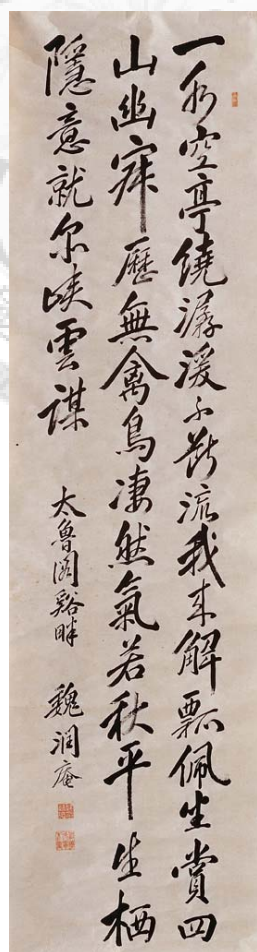 一水空亭繞潺湲不斷流我来解瓢佩坐賞四
山幽寂歷無禽鳥凄然氣若秋平生栖
隱意就尔峽雲謀
太魯閣谿畔 魏潤庵